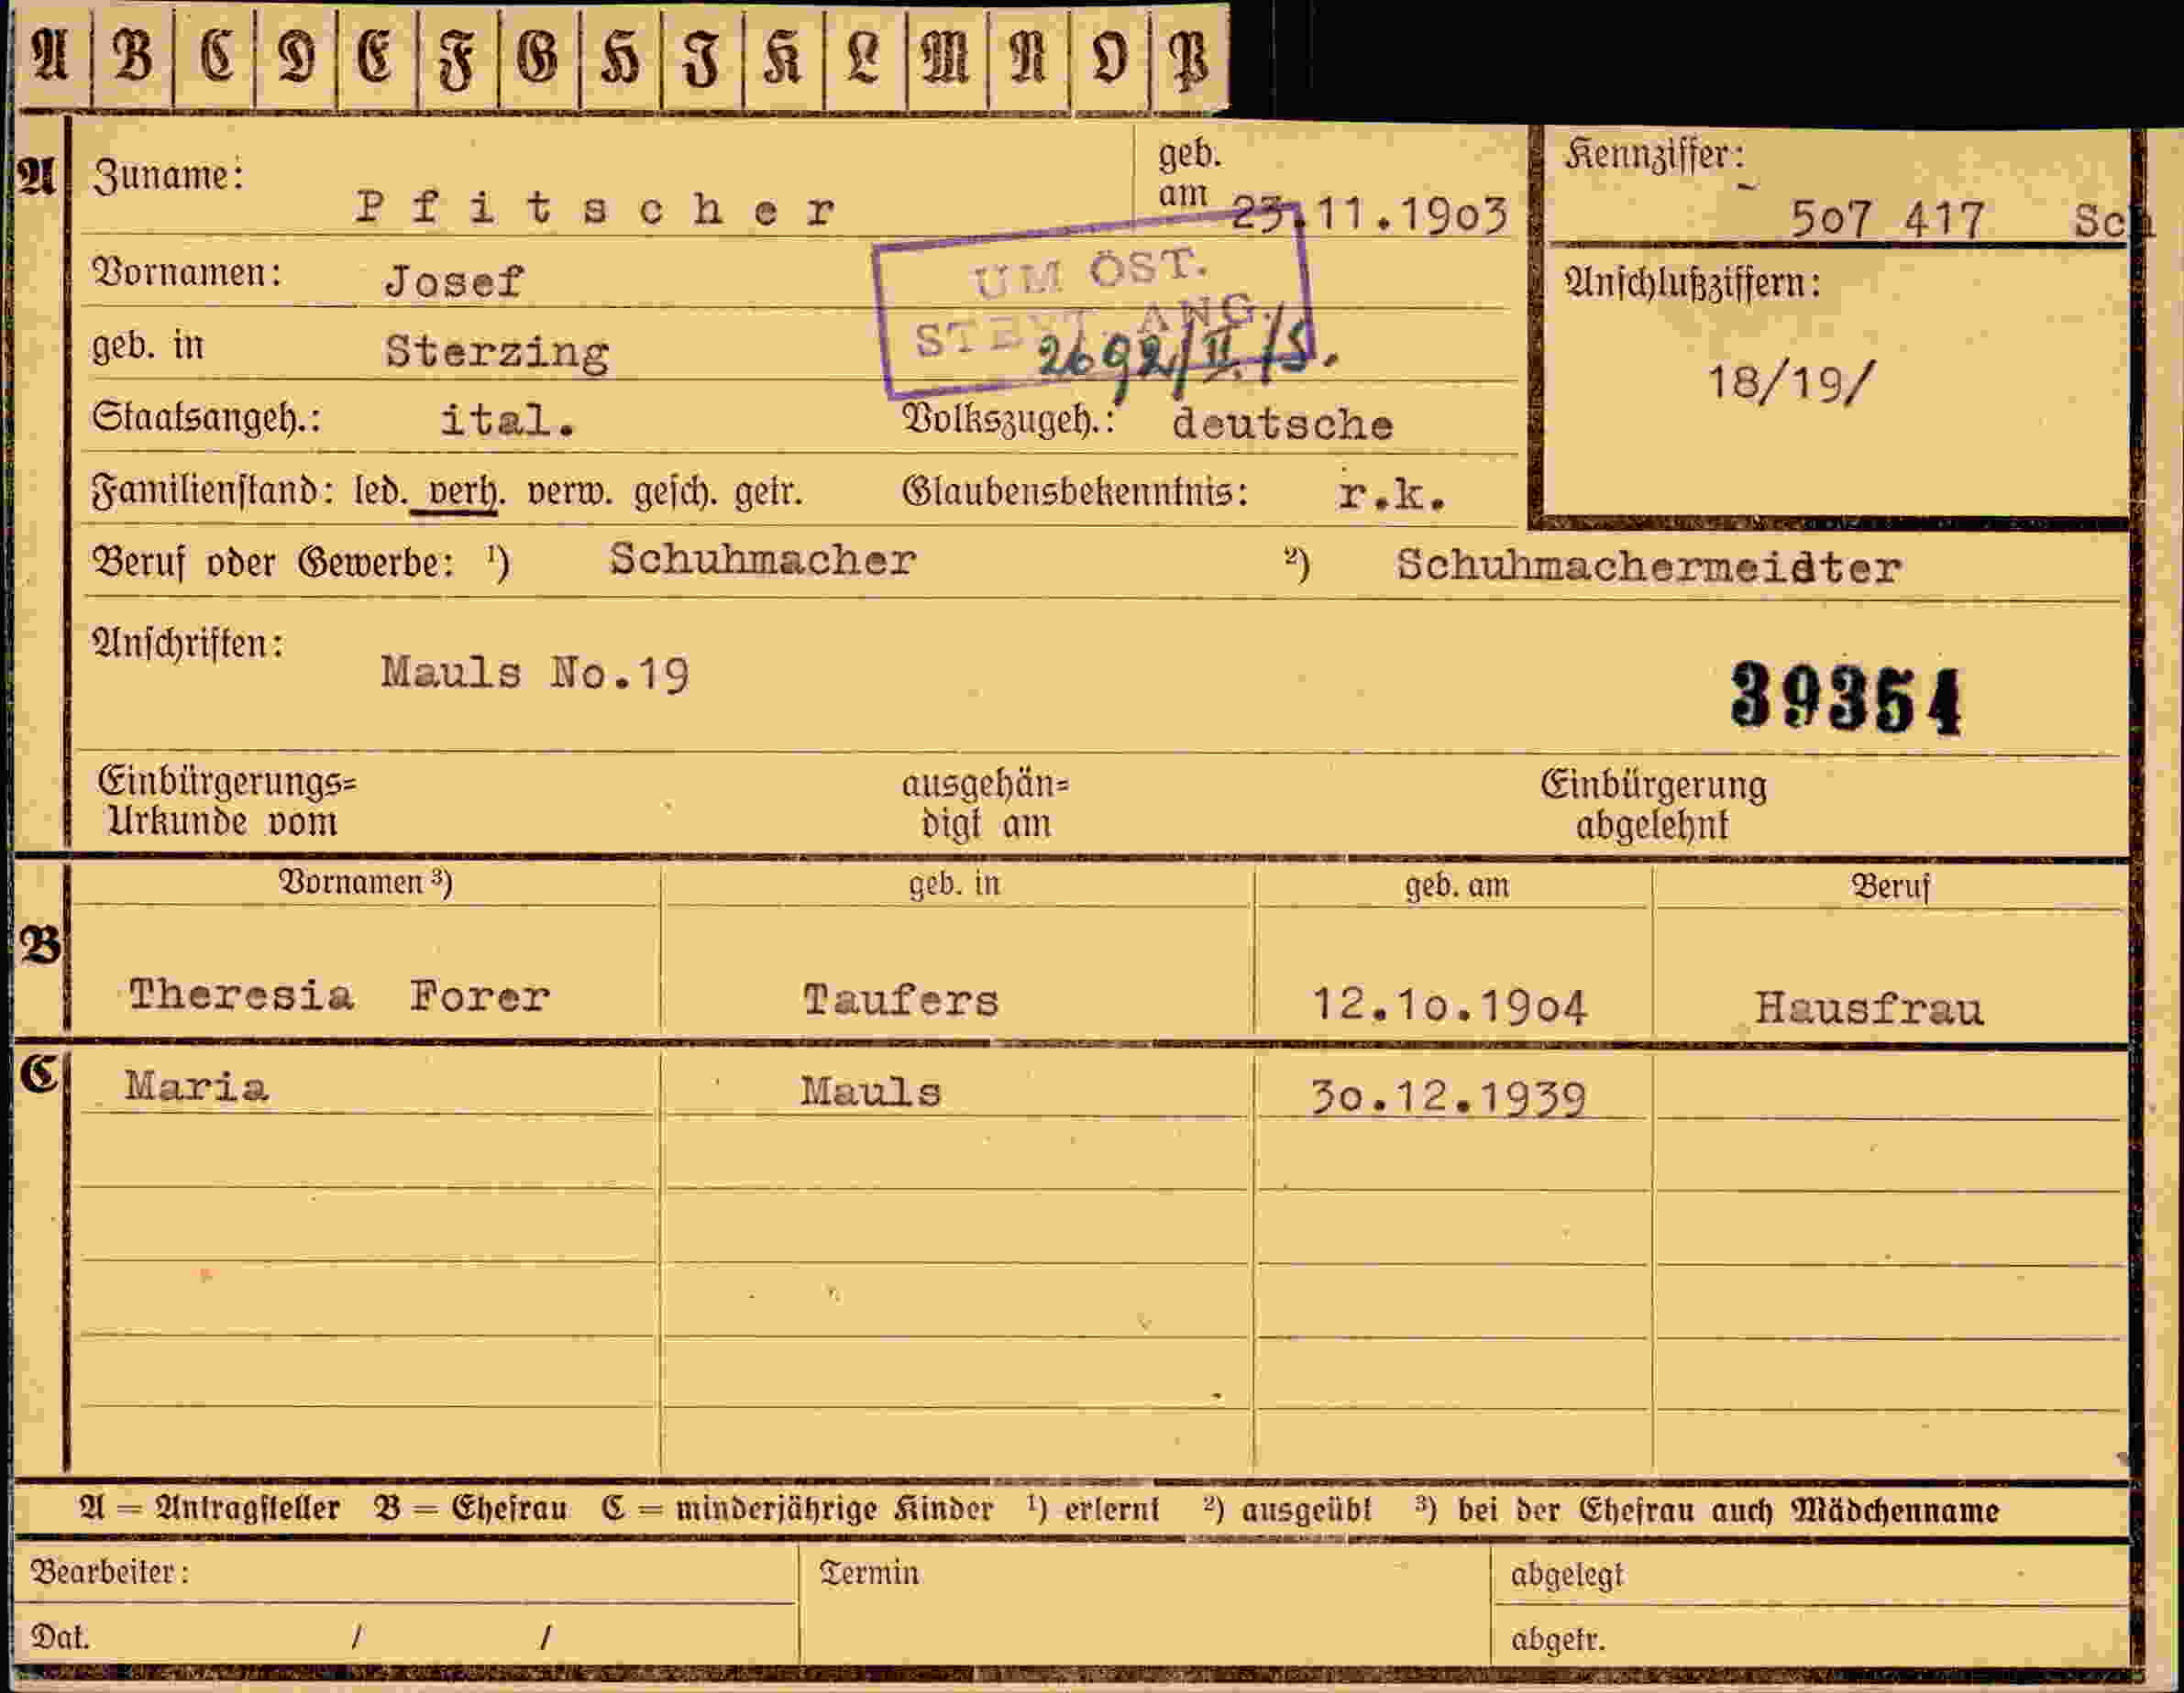 A B C D E F G H I K L M N O P
A Zuname: Pfitscher geb. am 23.11.1903 Kennziffer: 507 417 Sch
Vornamen: Josef UM ÖST. Anschlußziffern:
geb. in Sterzing ST. ANG. 2692/II./S. 18/19/
Staatsangeh.: ital. Volkszugeh.: deutsche
Familienstand: led. verh. verw. gesch. getr. Glaubensbekenntnis: r.k.
Beruf oder Gewerbe: 1) Schuhmacher 2) Schuhmachermeidter
Anschriften: Mauls No.19 39354
Einbürgerungs= ausgehän= Einbürgerung
Urkunde vom digt am abgelehnt
B Vornamen 3) geb. in geb. am Beruf
Theresia Forer Taufers 12.10.1904 Hausfrau
C Maria Mauls 30.12.1939
A = Antragsteller B = Ehefrau C = minderjährige Kinder 1) erlernt 2) ausgeübt 3) bei der Ehefrau auch Mädchenname
Bearbeiter: Termin abgelegt
Dat. / / abgetr.